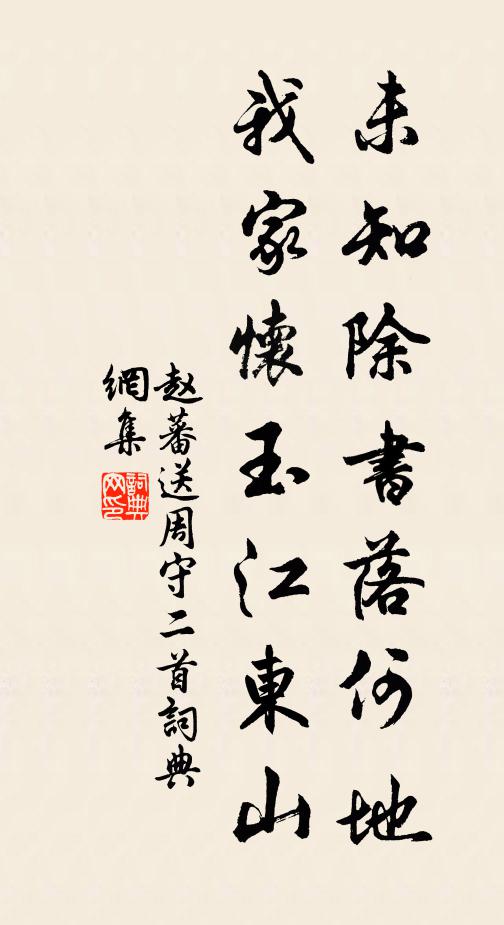 未知除書落何地
我家懷玉江東山
赵蕃送周守二首詞典
網集
詞典
网印